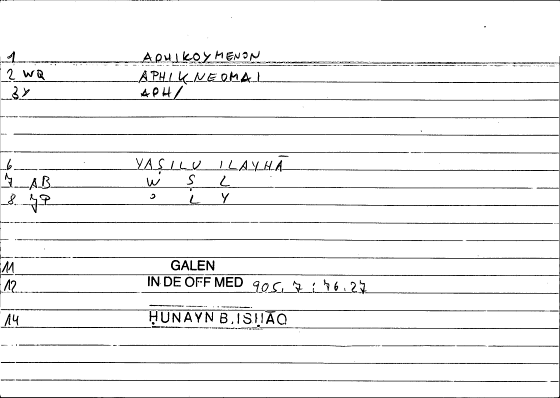 1 APHIKOYMENON
2 WQ APHIKNEOMAI
3 Y APH/
6 YAṢILU ILAYHĀ
7 AB W Ṣ L
8 JP ʾ L Y
11 GALEN
12 IN DE OFF MED 905, 7 : 76.27
14 ḤUNAYN B. ISḤĀQ